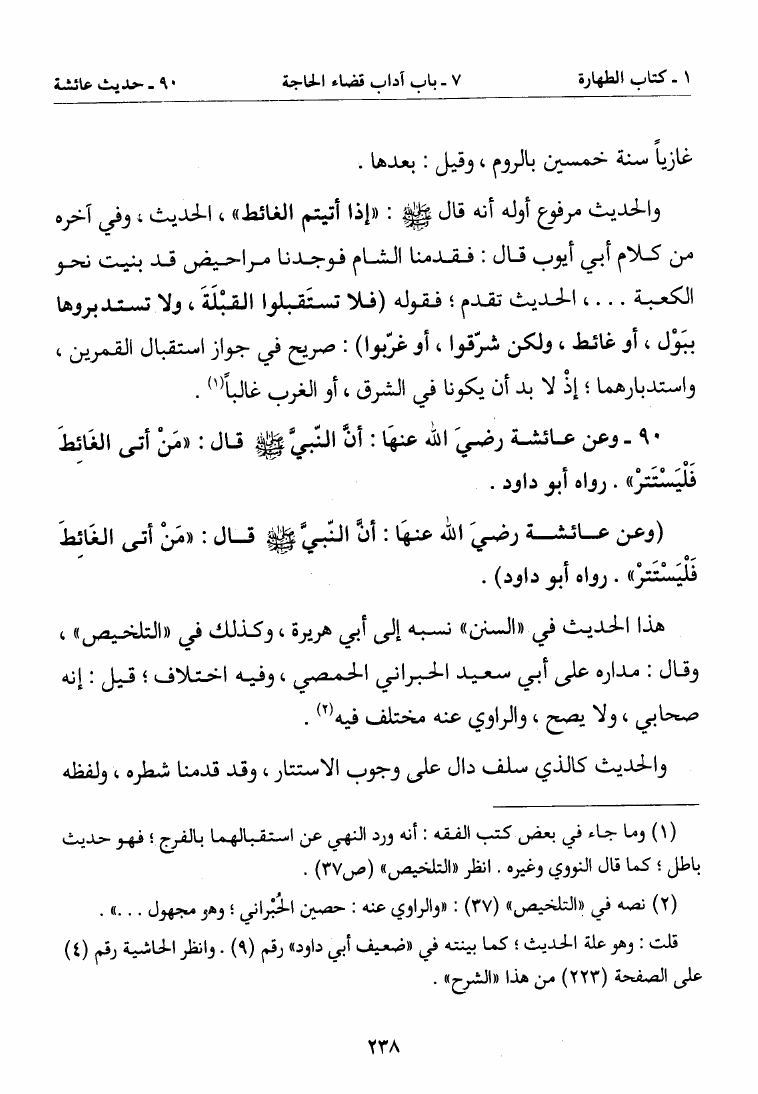 ١ ـ كتاب الطهارة ٧ ـ باب آداب قضاء الحاجة ٩٠ ـ حديث عائشة
غازياً سنة خمسين بالروم ، وقيل : بعدها .
والحديث مرفوع أوله أنه قال ﷺ : «إذا أتيتم الغائط» ، الحديث ، وفي آخره
من كلام أبي أيوب قال : فقدمنا الشام فوجدنا مراحيض قد بنيت نحو
الكعبة . . . ، الحديث تقدم ؛ فقوله (فلا تستَقبلوا القبْلَةَ ، ولا تستدبروها
ببَوْل ، أو غائط ، ولكن شرّقوا ، أو غرّبوا) : صريح في جواز استقبال القمرين ،
واستدبارهما ؛ إذْ لا بد أن يكونا في الشرق ، أو الغرب غالباً(١) .
٩٠ ـ وعن عائشة رضيَ الله عنهَا : أنَّ النّبيَّ ﷺ قال : «مَنْ أتى الغَائطَ
فَلْيَسْتَترْ» . رواه أبو داود .
(وعن عائشة رضيَ الله عنهَا : أنَّ النّبيَّ ﷺ قال : «مَنْ أتى الغَائطَ
فَلْيَسْتَترْ» . رواه أبو داود) .
هذا الحديث في «السنن» نسبه إلى أبي هريرة ، وكذلك في «التلخيص» ،
وقال : مداره على أبي سعيد الحبراني الحمصي ، وفيه اختلاف ؛ قيل : إنه
صحابي ، ولا يصح ، والراوي عنه مختلف فيه(٢) .
والحديث كالذي سلف دال على وجوب الاستتار ، وقد قدمنا شطره ، ولفظه
(١) وما جاء في بعض كتب الفقه : أنه ورد النهي عن استقبالهما بالفرج ؛ فهو حديث
باطل ؛ كما قال النووي وغيره . انظر «التلخيص» (ص٣٧) .
(٢) نصه في «التلخيص» (٣٧) : «والراوي عنه : حصين الحُبْراني ؛ وهو مجهول . . .» .
قلت : وهو علة الحديث ؛ كما بينته في «ضعيف أبي داود» رقم (٩) . وانظر الحاشية رقم (٤)
على الصفحة (٢٢٣) من هذا «الشرح» .
٢٣٨